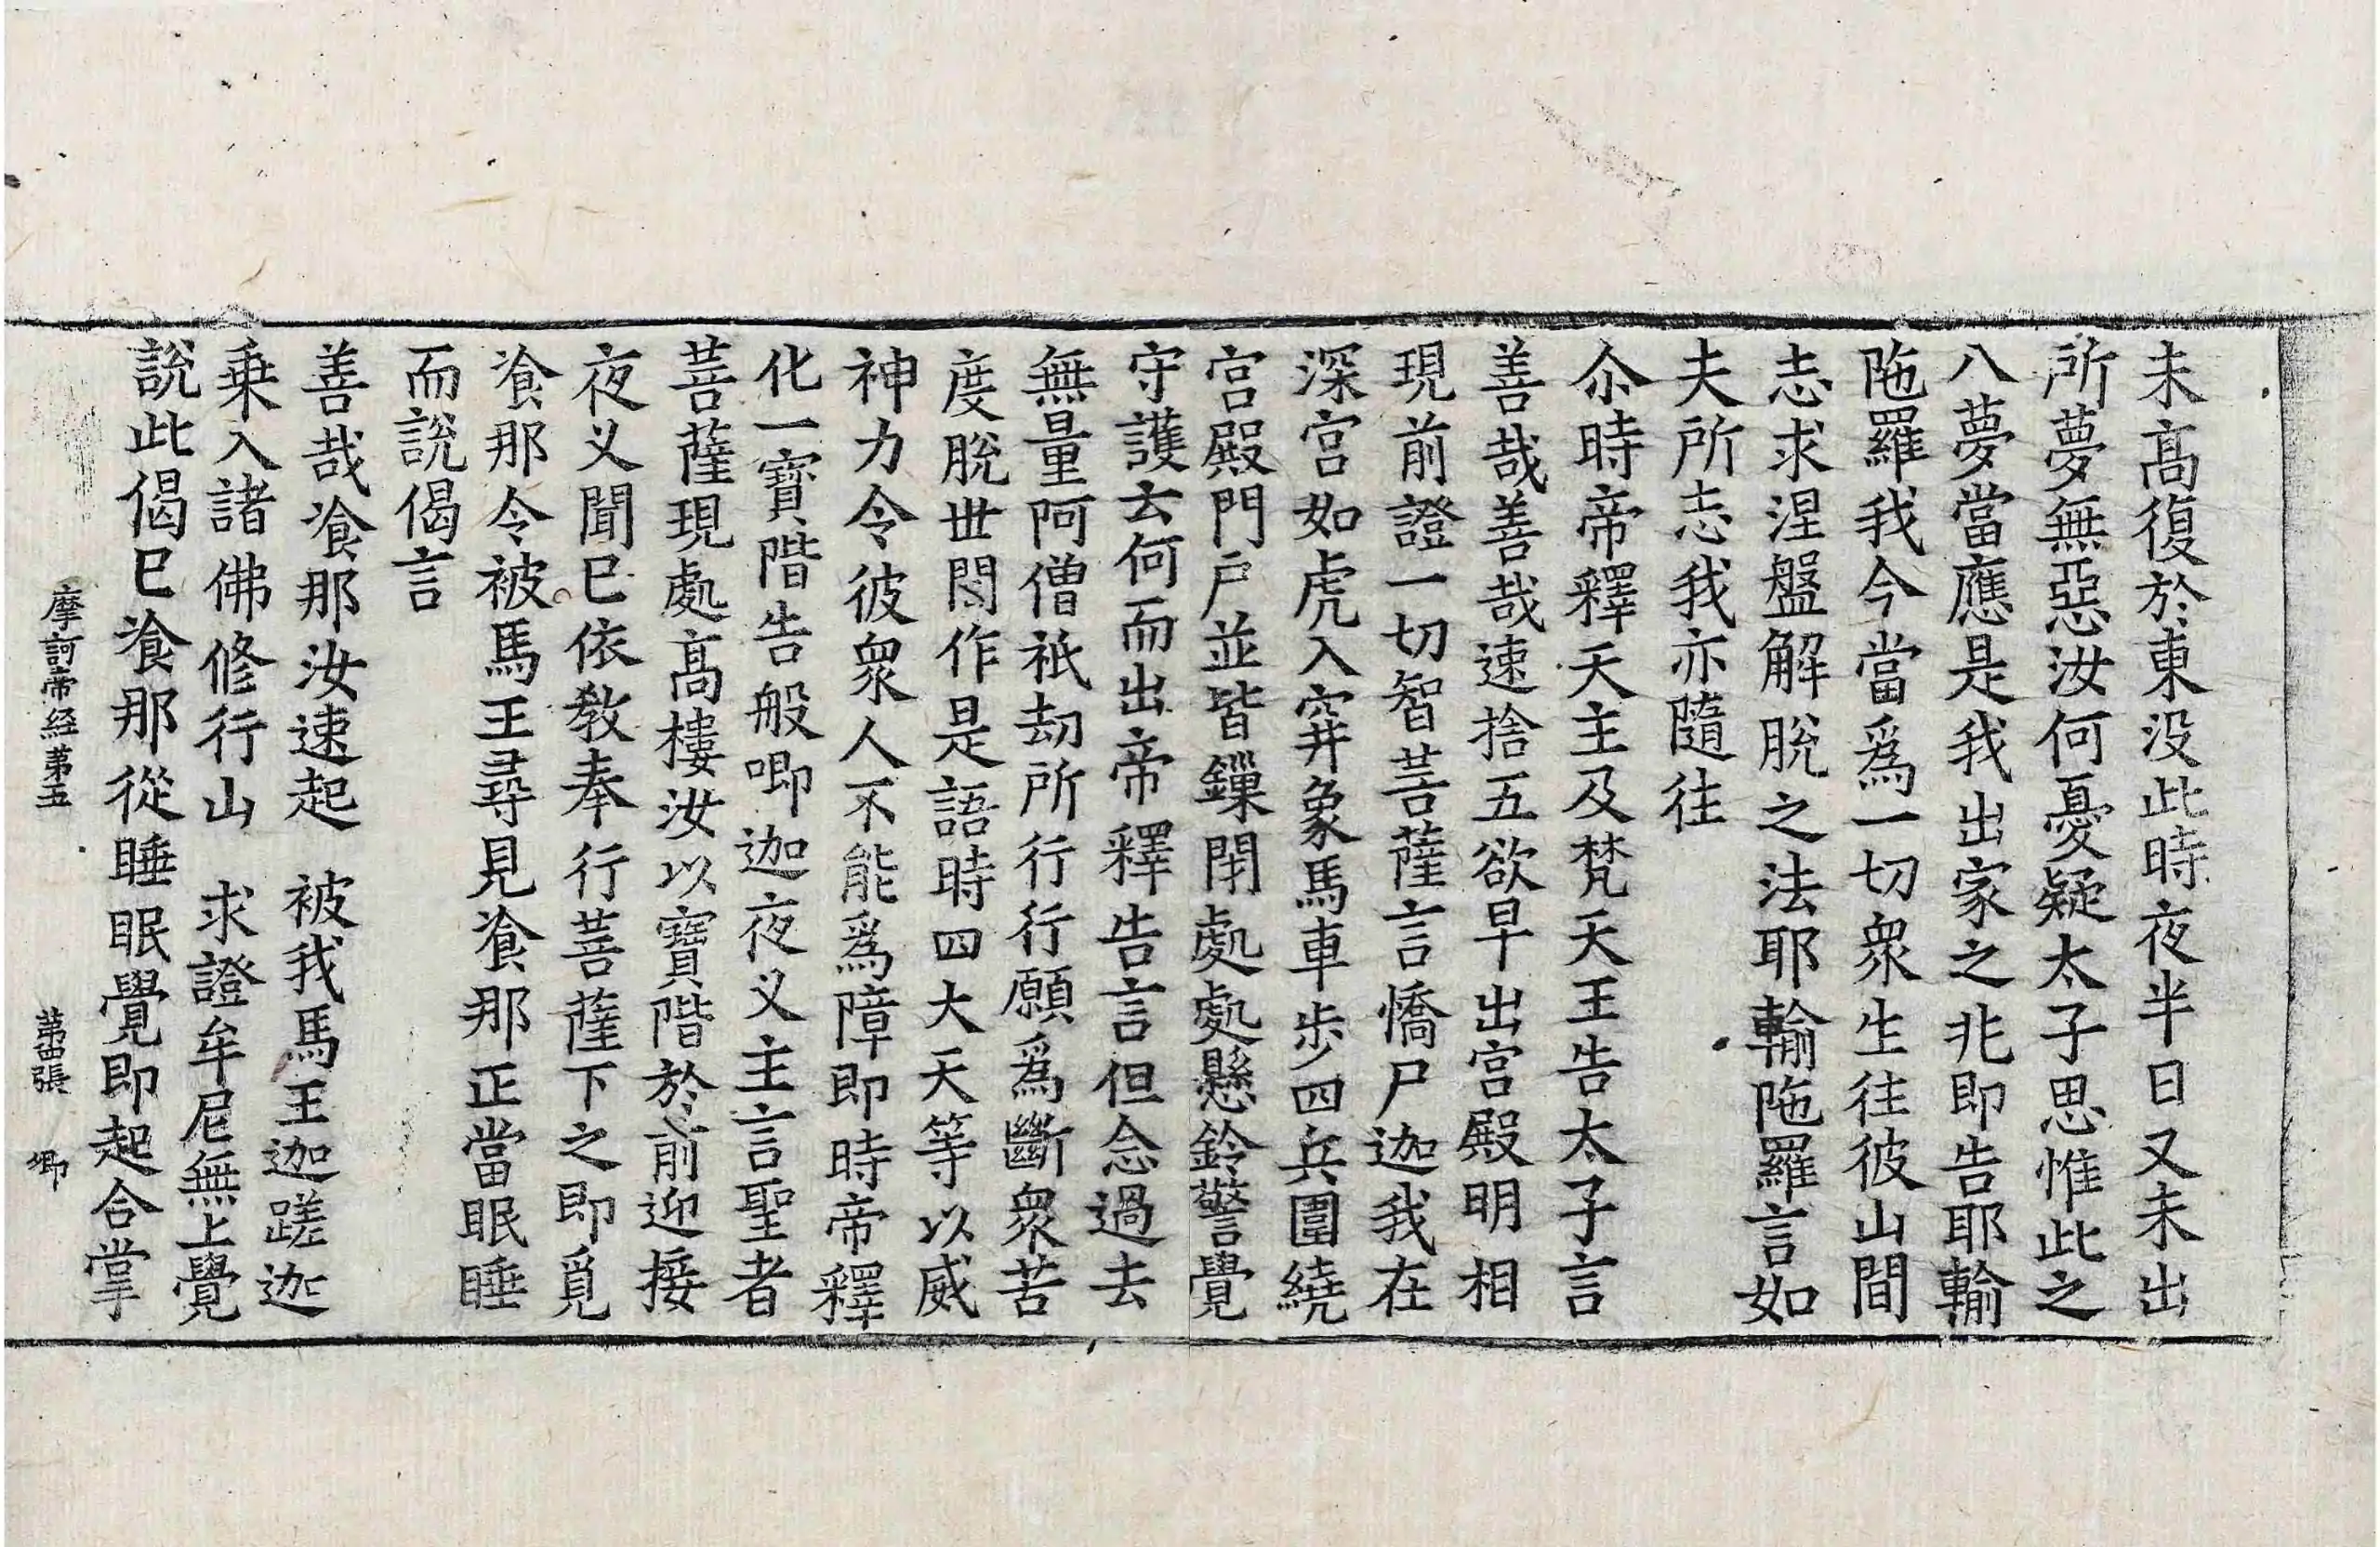 未高復於東没此時夜半日又未出
所夢無惡汝何憂疑太子思惟此之
八夢當應是我出家之兆即告耶輸
陁羅我今當爲一切衆生往彼山間
志求涅盤解脫之法耶輸陁羅言如
夫所志我亦隨往
尒時帝釋天主及梵天王告太子言
善哉善哉速捨五欲早出宮殿明相
現前證一切智菩薩言憍尸迦我在
深宮如虎入穽象馬車步四兵圍繞
宮殿門戶並皆鏁閇處處懸鈴警覺
守護云何而出帝釋告言但念過去
無量阿僧祇劫所行行願爲斷衆苦
度脫世間作是語時四大天等以威
神力令彼衆人不能爲障即時帝釋
化一寶階告般唧迦夜叉主言聖者
菩薩現處高樓汝以寶階於前迎接
夜叉聞已依教奉行菩薩下之即覓
飡那令被馬王尋見飡那正當眠睡
而說偈言
善哉飡那汝速起　被我馬王迦蹉迦
乗入諸佛修行山　求證牟尼無上覺
說此偈已飡那從睡眠覺即起合掌
摩訶帝經第五　第四張　卿